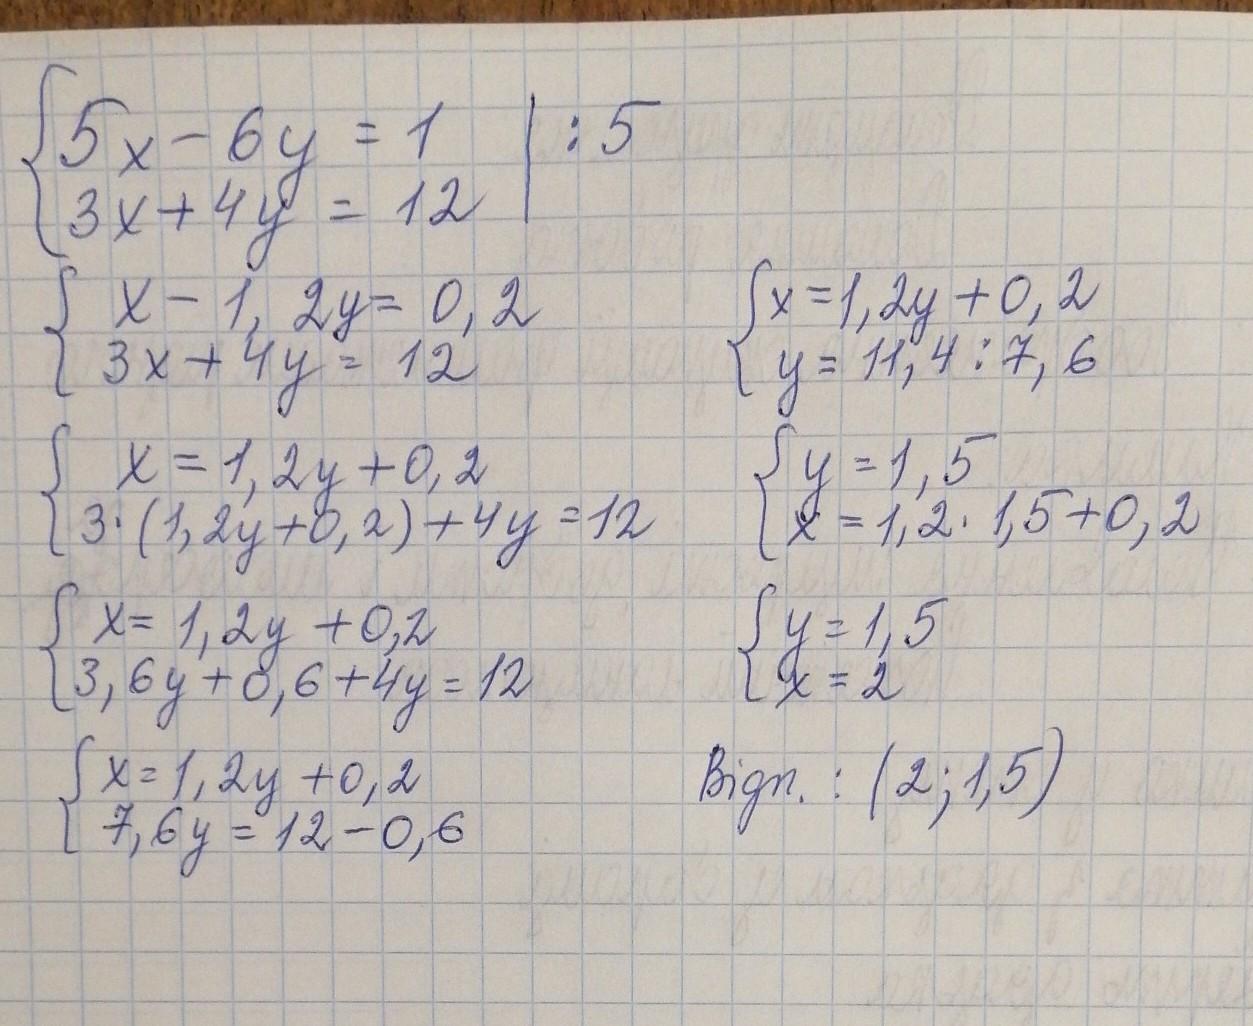 5x - 6y = 1 | : 5
3x + 4y = 12
x - 1,2y = 0,2
3x + 4y = 12
x = 1,2y + 0,2
3·(1,2y + 0,2) + 4y = 12
x = 1,2y + 0,2
3,6y + 0,6 + 4y = 12
x = 1,2y + 0,2
7,6y = 12 - 0,6
x = 1,2y + 0,2
y = 11,4 : 7,6
y = 1,5
x = 1,2 · 1,5 + 0,2
y = 1,5
x = 2
Відп. : (2; 1,5)